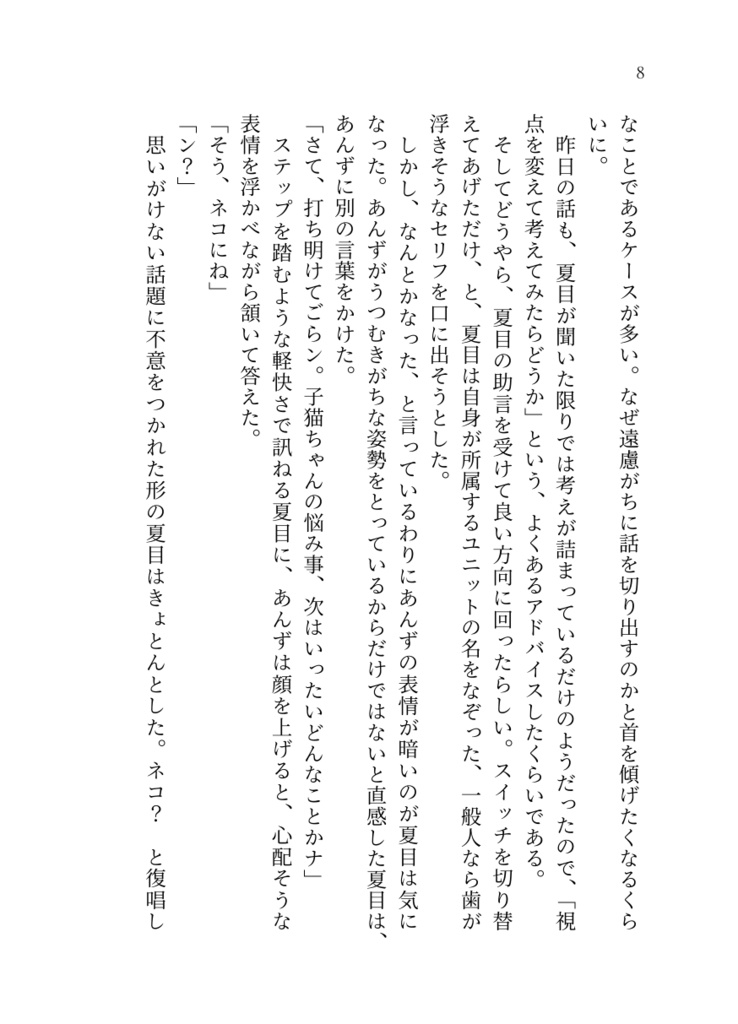 8
なことであるケースが多い。なぜ遠慮がちに話を切り出すのかと首を傾げたくなるくら
いに。
　昨日の話も、夏目が聞いた限りでは考えが詰まっているだけのようだったので、「視
点を変えて考えてみたらどうか」という、よくあるアドバイスしたくらいである。
　そしてどうやら、夏目の助言を受けて良い方向に回ったらしい。スイッチを切り替
えてあげただけ、と、夏目は自身が所属するユニットの名をなぞった、一般人なら歯が
浮きそうなセリフを口に出そうとした。
　しかし、なんとかなった、と言っているわりにあんずの表情が暗いのが夏目は気に
なった。あんずがうつむきがちな姿勢をとっているからだけではないと直感した夏目は、
あんずに別の言葉をかけた。
「さて、打ち明けてごらン。子猫ちゃんの悩み事、次はいったいどんなことかナ」
　ステップを踏むような軽快さで訊ねる夏目に、あんずは顔を上げると、心配そうな
表情を浮かべながら頷いて答えた。
「そう、ネコにね」
「ン？」
　思いがけない話題に不意をつかれた形の夏目はきょとんとした。ネコ？　と復唱し